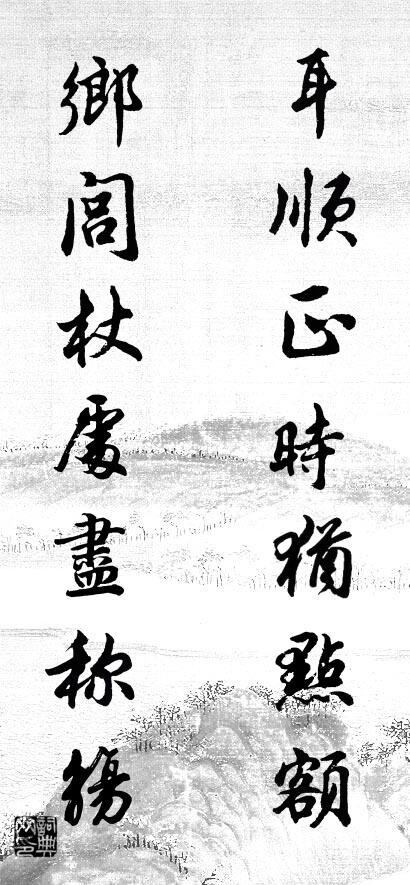 耳順正時猶點額
鄉閭杖處盡称觴
詞典